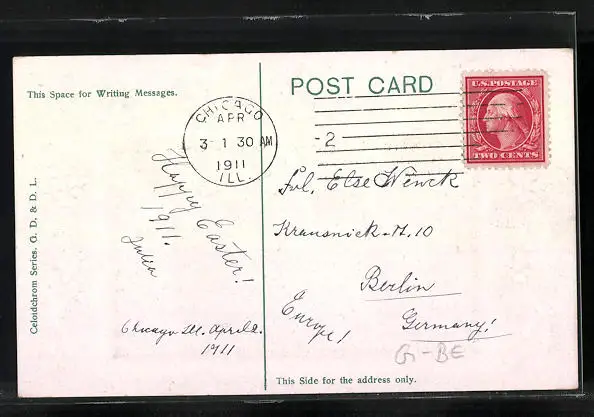 POST CARD
This Space for Writing Messages.
U.S. POSTAGE
TWO CENTS
CHICAGO
APR
3- 1 30 AM
1911
ILL.
2
Happy Easter!
1911.
Julia
Chicago Ill. April 2.
1911
Frl. Else Wenck
Krausnick-St. 10
Berlin
Germany!
Europe!
G-BE
This Side for the address only.
Celoidchrom Series. G. D. & D. L.